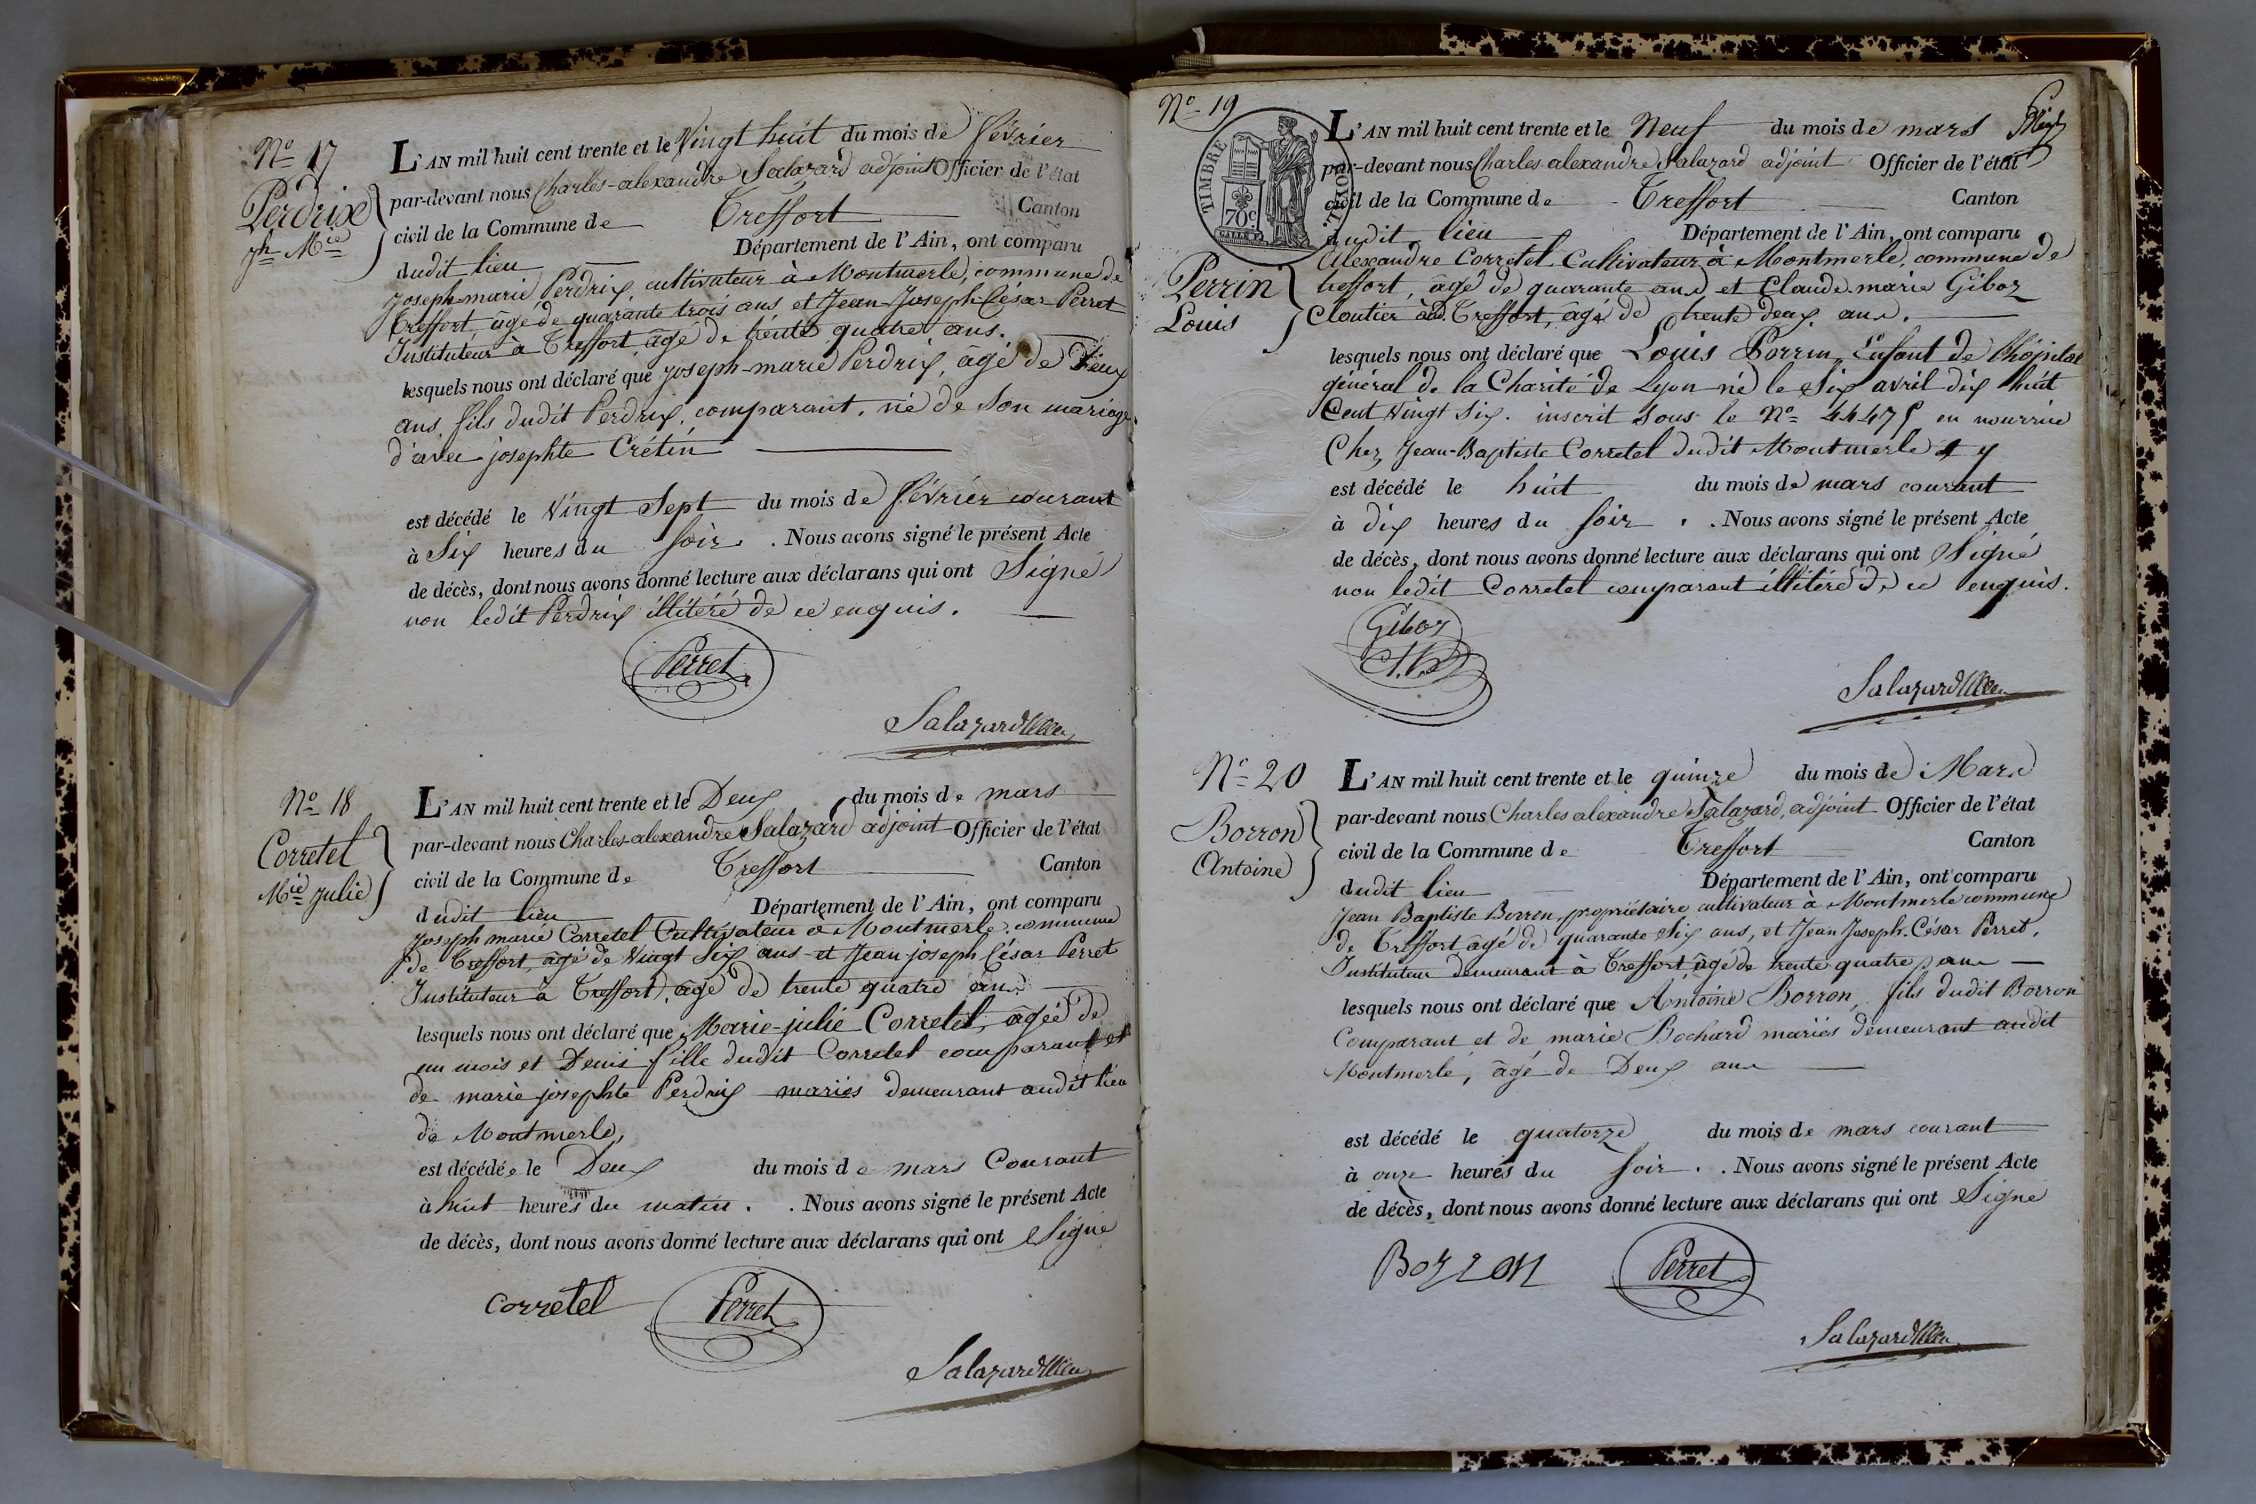 No 17
Perdrix
jh Mie
L'AN mil huit cent trente et le Vingt huit du mois de février
par-devant nous Charles-alexandre Salazard adjoint Officier de l'état
civil de la Commune de Treffort Canton
dudit lieu Département de l'Ain, ont comparu
joseph-marie Perdrix, cultivateur à Montmerle, commune de
Treffort, âgé de quarante trois ans et Jean-Joseph-César Perret
Instituteur à Treffort âgé de trente quatre ans.
lesquels nous ont déclaré que joseph-marie Perdrix, âgé de Deux
ans, fils dudit Perdrix, comparant, né de son mariage
d'avec josephte Crétin
est décédé le Vingt Sept du mois de février courant
à Six heures du soir. Nous avons signé le présent Acte
de décès, dont nous avons donné lecture aux déclarans qui ont Signé
non ledit Perdrix illitéré de ce enquis.
Perret
Salazard
No 18
Corretel
Mie julie
L'AN mil huit cent trente et le Deux du mois de mars
par-devant nous Charles-alexandre Salazard adjoint Officier de l'état
civil de la Commune de Treffort Canton
dudit lieu Département de l'Ain, ont comparu
joseph marie Corretel Cultivateur à Montmerle, commune
de Treffort, âgé de Vingt Six ans et Jean-joseph César Perret
Instituteur à Treffort, âgé de trente quatre ans.
lesquels nous ont déclaré que Marie-julie Corretel, âgée de
un mois et Demi fille dudit Corretel comparant et
de marie josephte Perdrix mariés demeurant audit lieu
de Montmerle,
est décédée le Deux du mois de mars Courant
à huit heures du matin. . Nous avons signé le présent Acte
de décès, dont nous avons donné lecture aux déclarans qui ont Signé
corretel Perret
Salazard
No 19
TIMBRE ROYAL
70c
Perrin
Louis
L'AN mil huit cent trente et le Neuf du mois de mars
par-devant nous Charles alexandre Salazard adjoint Officier de l'état
civil de la Commune de Treffort Canton
dudit lieu Département de l'Ain, ont comparu
Alexandre Corretel Cultivateur à Montmerle, commune de
treffort, âgé de quarante ans et Claude-marie Giboz
Cloutier Treffort, âgé de trente deux ans.
lesquels nous ont déclaré que Louis Perrin, Enfant de l'hôpital
général de la Charité de Lyon né le Six avril dix huit
Cent Vingt Six. inscrit sous le No en nourrice
Chez Jean-Baptiste Corretel dudit Montmerle y
est décédé le huit du mois de mars courant
à dix heures du soir . . Nous avons signé le présent Acte
de décès, dont nous avons donné lecture aux déclarans qui ont Signé
non ledit Corretel comparant illitéré de ce enquis.
Giboz
Salazard
No 20
Borron
Antoine
L'AN mil huit cent trente et le quinze du mois de Mars
par-devant nous Charles alexandre Salazard, adjoint Officier de l'état
civil de la Commune de Treffort Canton
dudit lieu Département de l'Ain, ont comparu
Jean Baptiste Borron, propriétaire cultivateur à Montmerle commune
de Treffort âgé de quarante Six ans, et Jean Joseph-César Perret,
Instituteur demeurant à Treffort, âgé de trente quatre ans
lesquels nous ont déclaré que Antoine Borron, fils dudit Borron
Comparant et de marie Bochard mariés demeurant audit
Montmerle, âgé de Deux ans
est décédé le quatorze du mois de mars courant
à onze heures du soir. . Nous avons signé le présent Acte
de décès, dont nous avons donné lecture aux déclarans qui ont Signé
Borron Perret
Salazard